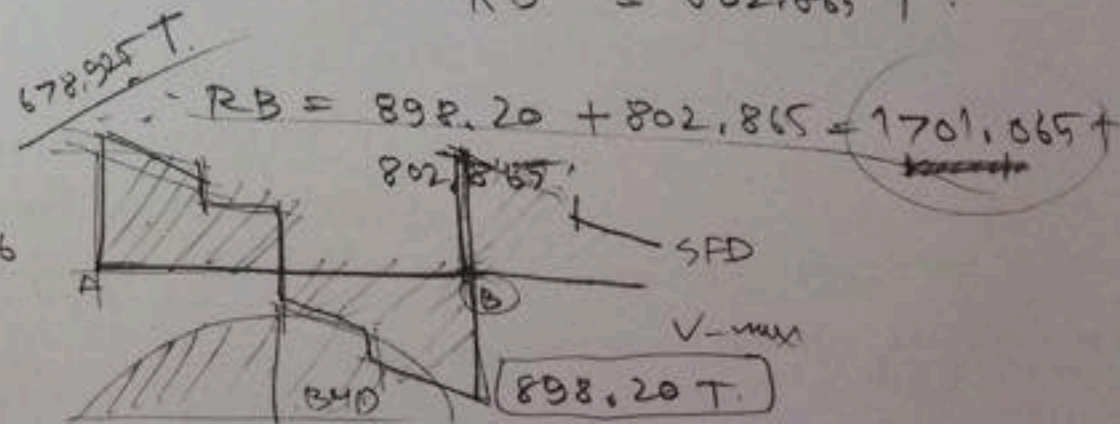 678.925 T.
RB = 898.20 + 802.865 = 1701.065 T
802.865
SFD
A
B
V-max
BMD
898.20 T.